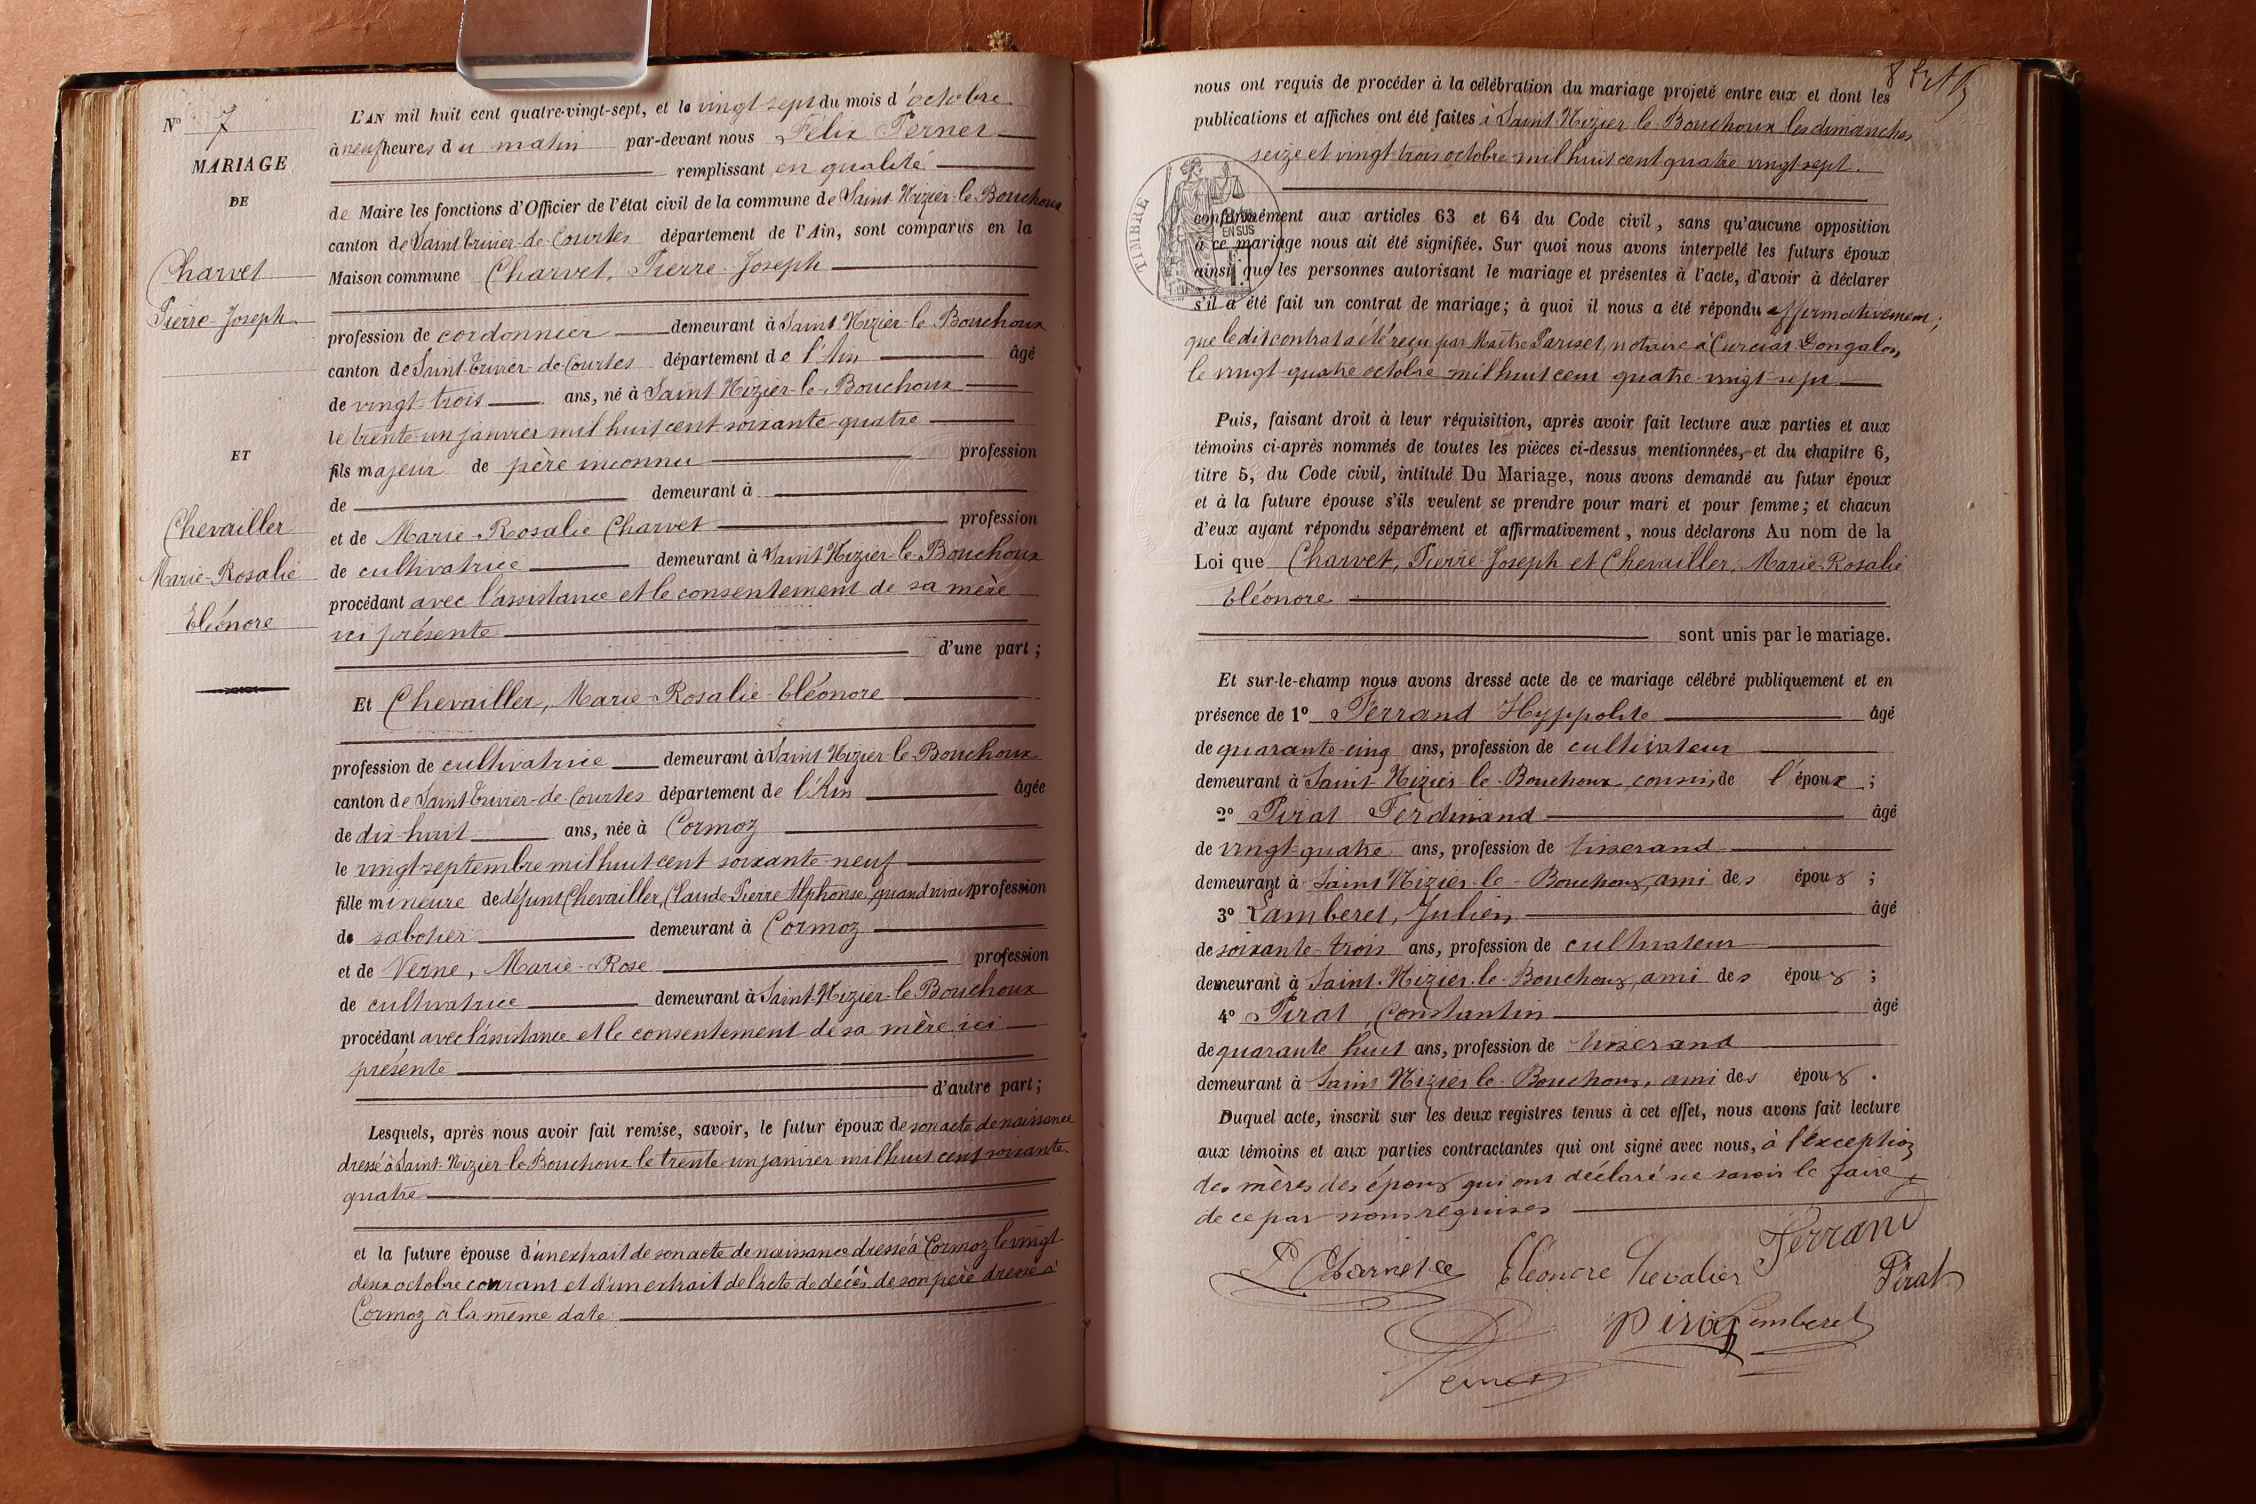 N° 7
MARIAGE
DE
Charvet
Pierre-Joseph
ET
Chevailler
Marie-Rosalie
Eléonore
L'AN mil huit cent quatre-vingt-sept, et le vingt sept du mois d'octobre
à neuf heures du matin par-devant nous Félix Perner
remplissant en qualité
de Maire les fonctions d'Officier de l'état civil de la commune de Saint-Nizier-le-Bouchoux
canton de Saint-Trivier-de-Courtes département de l'Ain, sont comparus en la
Maison commune Charvet, Pierre-Joseph
profession de cordonnier demeurant à Saint-Nizier-le-Bouchoux
canton de Saint-Trivier-de-Courtes département de l'Ain âgé
de vingt-trois ans, né à Saint-Nizier-le-Bouchoux
le trente-un janvier mil huit cent soixante-quatre
fils majeur de père inconnu profession
de demeurant à
et de Marie-Rosalie Charvet profession
de cultivatrice demeurant à Saint-Nizier-le-Bouchoux
procédant avec l'assistance et le consentement de sa mère
ici présente
d'une part;
Et Chevailler, Marie-Rosalie-Eléonore
profession de cultivatrice demeurant à Saint-Nizier-le-Bouchoux
canton de Saint-Trivier-de-Courtes département de l'Ain âgée
de dix-huit ans, née à Cormoz
le vingt septembre mil huit cent soixante-neuf
fille mineure de défunt Chevailler, Claude Pierre Alphonse, quand vivait profession
de sabotier demeurant à Cormoz
et de Verne, Marie-Rose profession
de cultivatrice demeurant à Saint-Nizier-le-Bouchoux
procédant avec l'assistance et le consentement de sa mère ici
présente
d'autre part;
Lesquels, après nous avoir fait remise, savoir, le futur époux de son acte de naissance
dressé à Saint-Nizier-le-Bouchoux le trente-un janvier mil huit cent soixante-
quatre
et la future épouse d'un extrait de son acte de naissance dressé à Cormoz le vingt-
deux octobre courant et d'un extrait de l'acte de décès de son père dressé à
Cormoz à la même date
nous ont requis de procéder à la célébration du mariage projeté entre eux et dont les
publications et affiches ont été faites à Saint-Nizier-le-Bouchoux les dimanches
seize et vingt-trois octobre mil huit cent quatre vingt-sept.
TIMBRE
EN SUS
conformément aux articles 63 et 64 du Code civil, sans qu'aucune opposition
à ce mariage nous ait été signifiée. Sur quoi nous avons interpellé les futurs époux
ainsi que les personnes autorisant le mariage et présentes à l'acte, d'avoir à déclarer
s'il a été fait un contrat de mariage; à quoi il nous a été répondu affirmativement;
que le dit contrat a été reçu par Maître Pariset, notaire à Curciat-Dongalon,
le vingt-quatre octobre mil huit cent quatre-vingt-sept
Puis, faisant droit à leur réquisition, après avoir fait lecture aux parties et aux
témoins ci-après nommés de toutes les pièces ci-dessus mentionnées, et du chapitre 6,
titre 5, du Code civil, intitulé Du Mariage, nous avons demandé au futur époux
et à la future épouse s'ils veulent se prendre pour mari et pour femme; et chacun
d'eux ayant répondu séparément et affirmativement, nous déclarons Au nom de la
Loi que Charvet, Pierre-Joseph et Chevailler, Marie-Rosalie
Eléonore
sont unis par le mariage.
Et sur-le-champ nous avons dressé acte de ce mariage célébré publiquement et en
présence de 1° Ferrand Hyppolite âgé
de quarante-cinq ans, profession de cultivateur
demeurant à Saint-Nizier-le-Bouchoux, cousin, de l'époux;
2° Pirat Ferdinand âgé
de vingt-quatre ans, profession de tisserand
demeurant à Saint-Nizier-le-Bouchoux, ami des époux;
3° Lamberet, Julien âgé
de soixante-trois ans, profession de cultivateur
demeurant à Saint-Nizier-le-Bouchoux, ami des époux;
4° Pirat, Constantin âgé
de quarante huit ans, profession de tisserand
demeurant à Saint-Nizier-le-Bouchoux, ami des époux.
Duquel acte, inscrit sur les deux registres tenus à cet effet, nous avons fait lecture
aux témoins et aux parties contractantes qui ont signé avec nous, à l'exception
des mères des époux qui ont déclaré ne savoir le faire
de ce par nous requises
Eléonore Chevalier Ferrand
Pirat
Pirat Lamberet
Perner